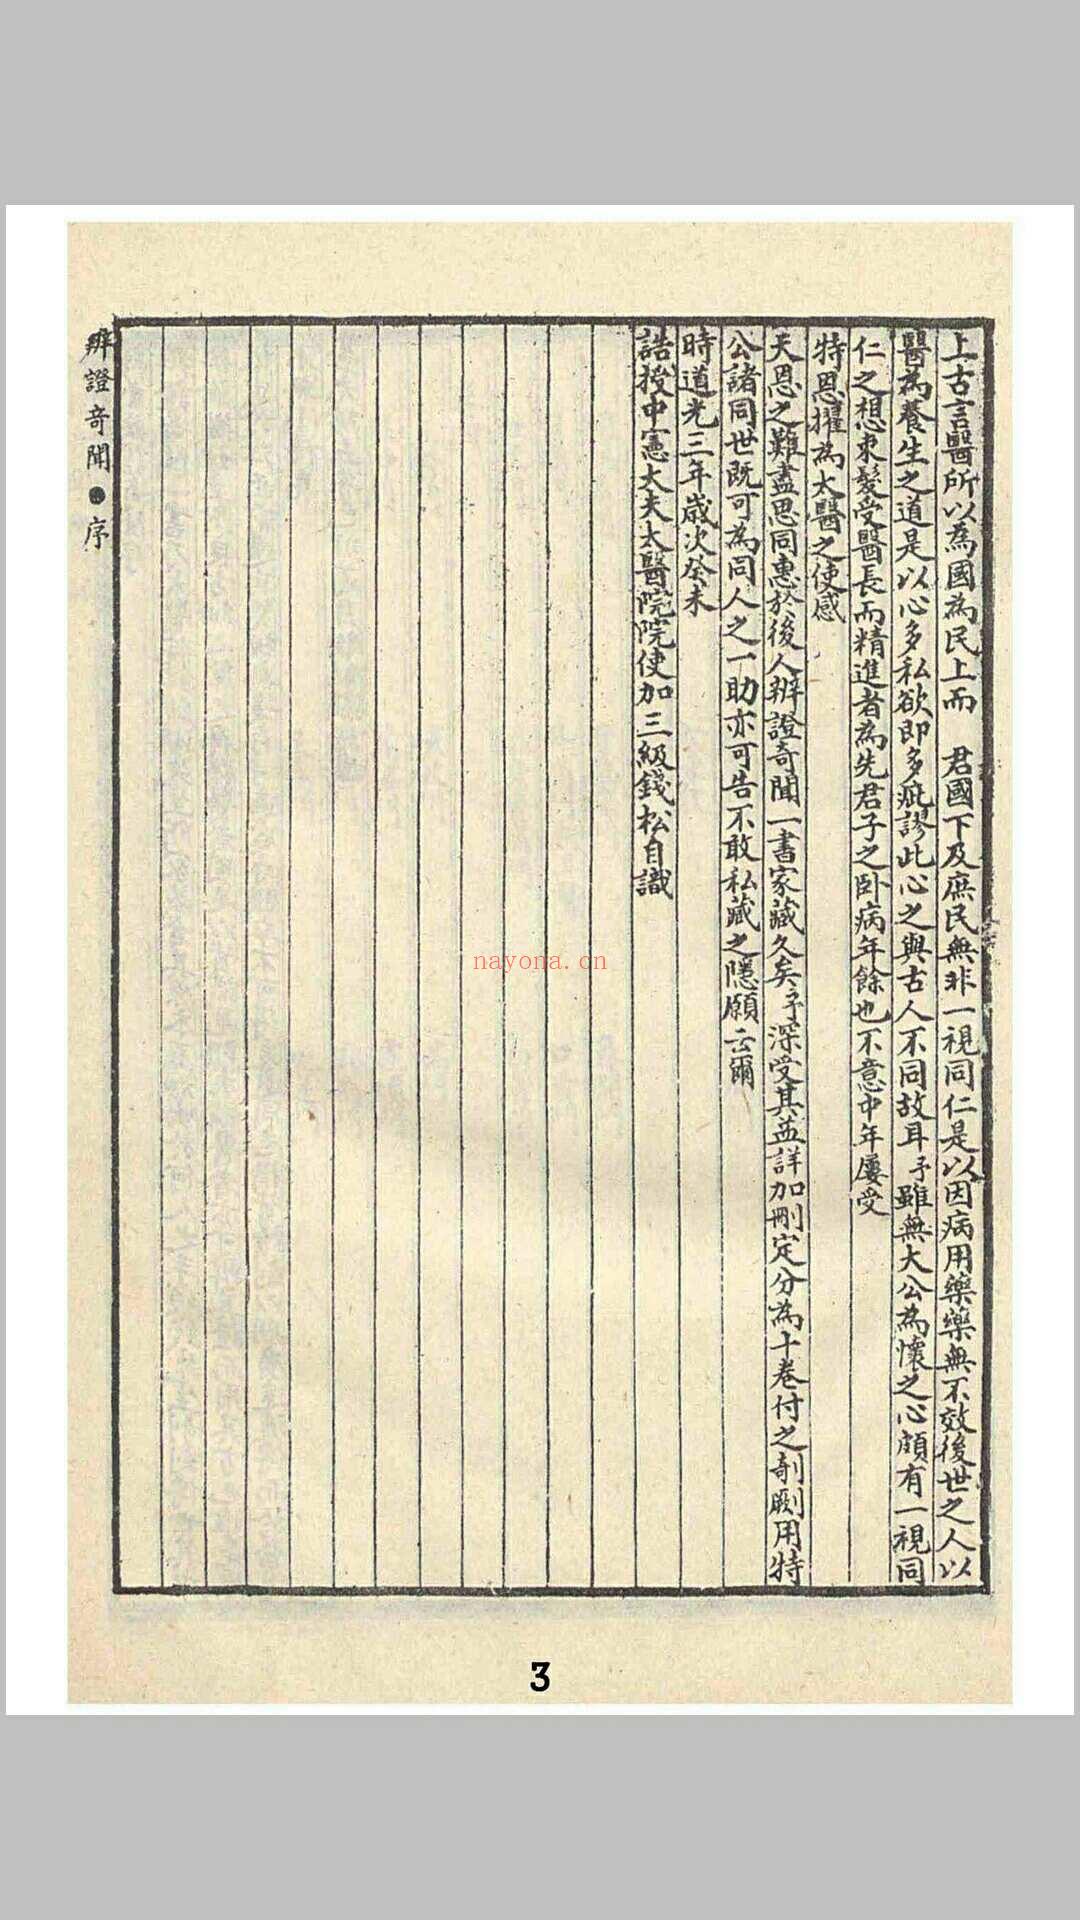 上古言醫所以為國為民上而　君國下及庶民無非一視同仁是以因病用藥藥無不效後世之人以
醫為養生之道是以心多私欲即多疵謬此心之與古人不同故耳予雖無大公為懷之心頗有一視同
仁之想束髮受醫長而精進者為先君子之臥病年餘也不意中年屢受
特恩擢為太醫之使感
天恩之難盡思同惠於後人辨證奇聞一書家藏久矣予深受其益詳加刪定分為十卷付之剞劂用特
公諸同世既可為同人之一助亦可告不敢私藏之隱願云爾
時道光三年歲次癸未
誥授中憲大夫太醫院院使加三級錢松自識
辨證奇聞●序
nayona.cn
3